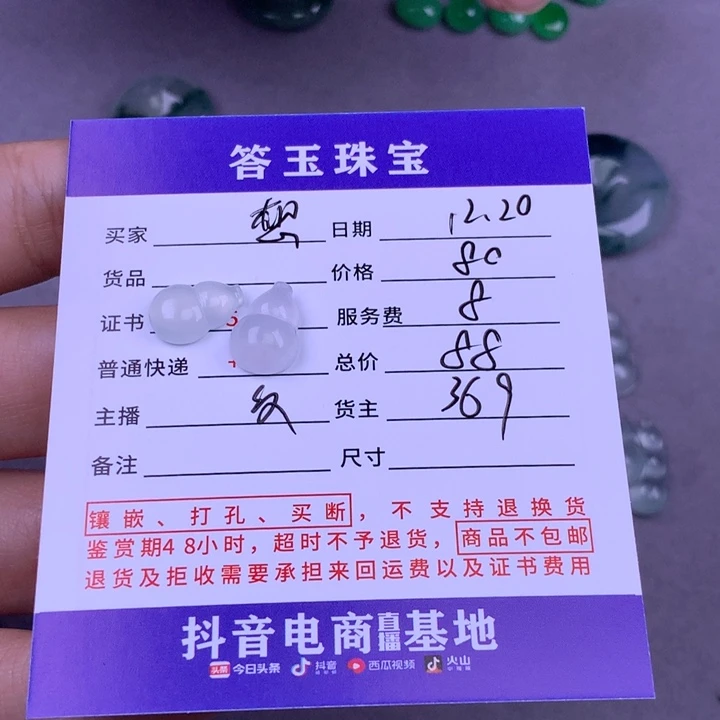 答玉珠宝
买家 想 日期 12.20
货品 价格 80
证书 服务费 8
普通快递 总价 88
主播 货主 369
备注 尺寸
镶嵌、打孔、买断，不支持退换货
鉴赏期48小时，超时不予退货，商品不包邮
退货及拒收需要承担来回运费以及证书费用
抖音电商直播基地
头条 今日头条 抖音 西瓜视频 火山